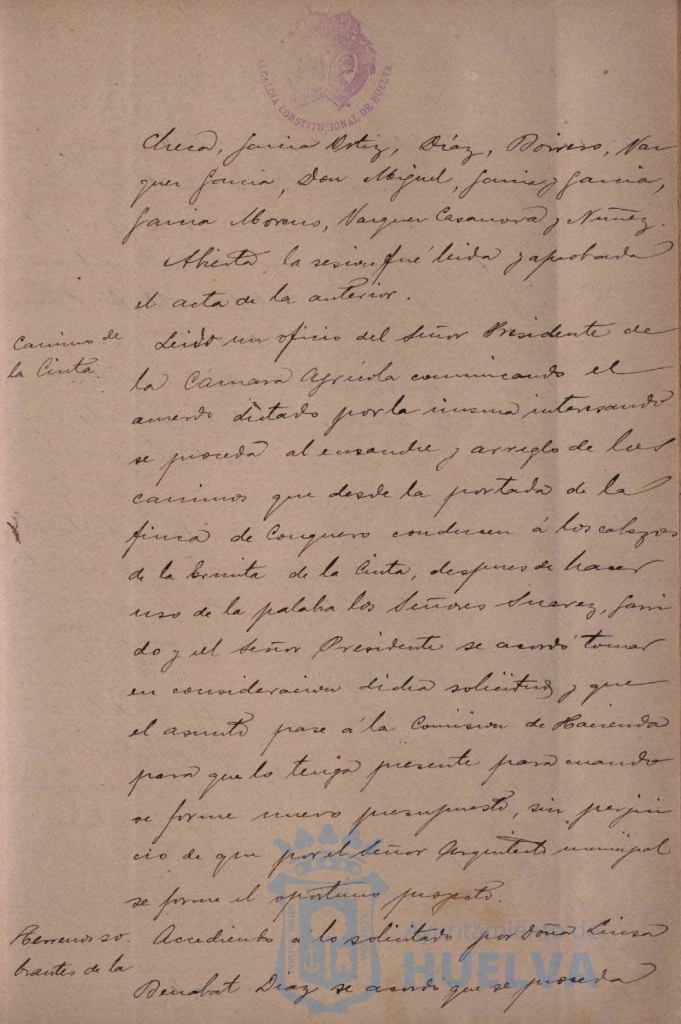 ALCALDIA CONSTITUCIONAL DE HUELVA
Checa, Garcia Ortiz, Díaz, Borrero, Vaz
quez Garcia, Don Miguel, Garcia y Garcia,
Garcia Moreno, Vazquez Casanova y Nuñez.
Abierta la sesion fué leida y aprobada
el acta de la anterior.
Camino de
la Cinta
Leido un oficio del Señor Presidente de
la Cámara Agrícola comunicando el
acuerdo dictado por la misma interesando
se proceda al ensanche y arreglo de los
caminos que desde la portada de la
finca de Conquero conducen á los cabezos
de la Ermita de la Cinta, despues de hacer
uso de la palaba los Señores Suarez, Garri
do y el Señor Presidente se acordó tomar
en consideracion dicha solicitud y que
el asunto pase á la Comision de Hacienda
para que lo tenga presente para cuando
se forme nuevo presupuesto, sin perjui
cio de que por el Señor Arquitecto municipal
se forme el oportuno proyecto.
Terrenos so
brantes de la
Accediendo á lo solicitado por Doña Luisa
Díaz se acordó que se proceda
Ayuntamiento de
HUELVA